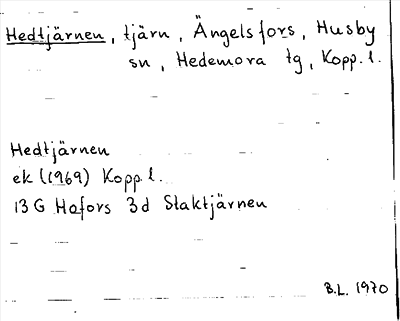 Hedtjärnen, tjärn, Ängelsfors, Husby
sn, Hedemora tg, Kopp. l.
Hedtjärnen
ek (1969) Kopp l.
13 G Hofors 3d Staktjärnen
B.L. 1970